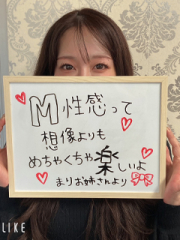 M性感って
想像よりも
めちゃくちゃ楽しいよ
まりお姉さんより
LIKE